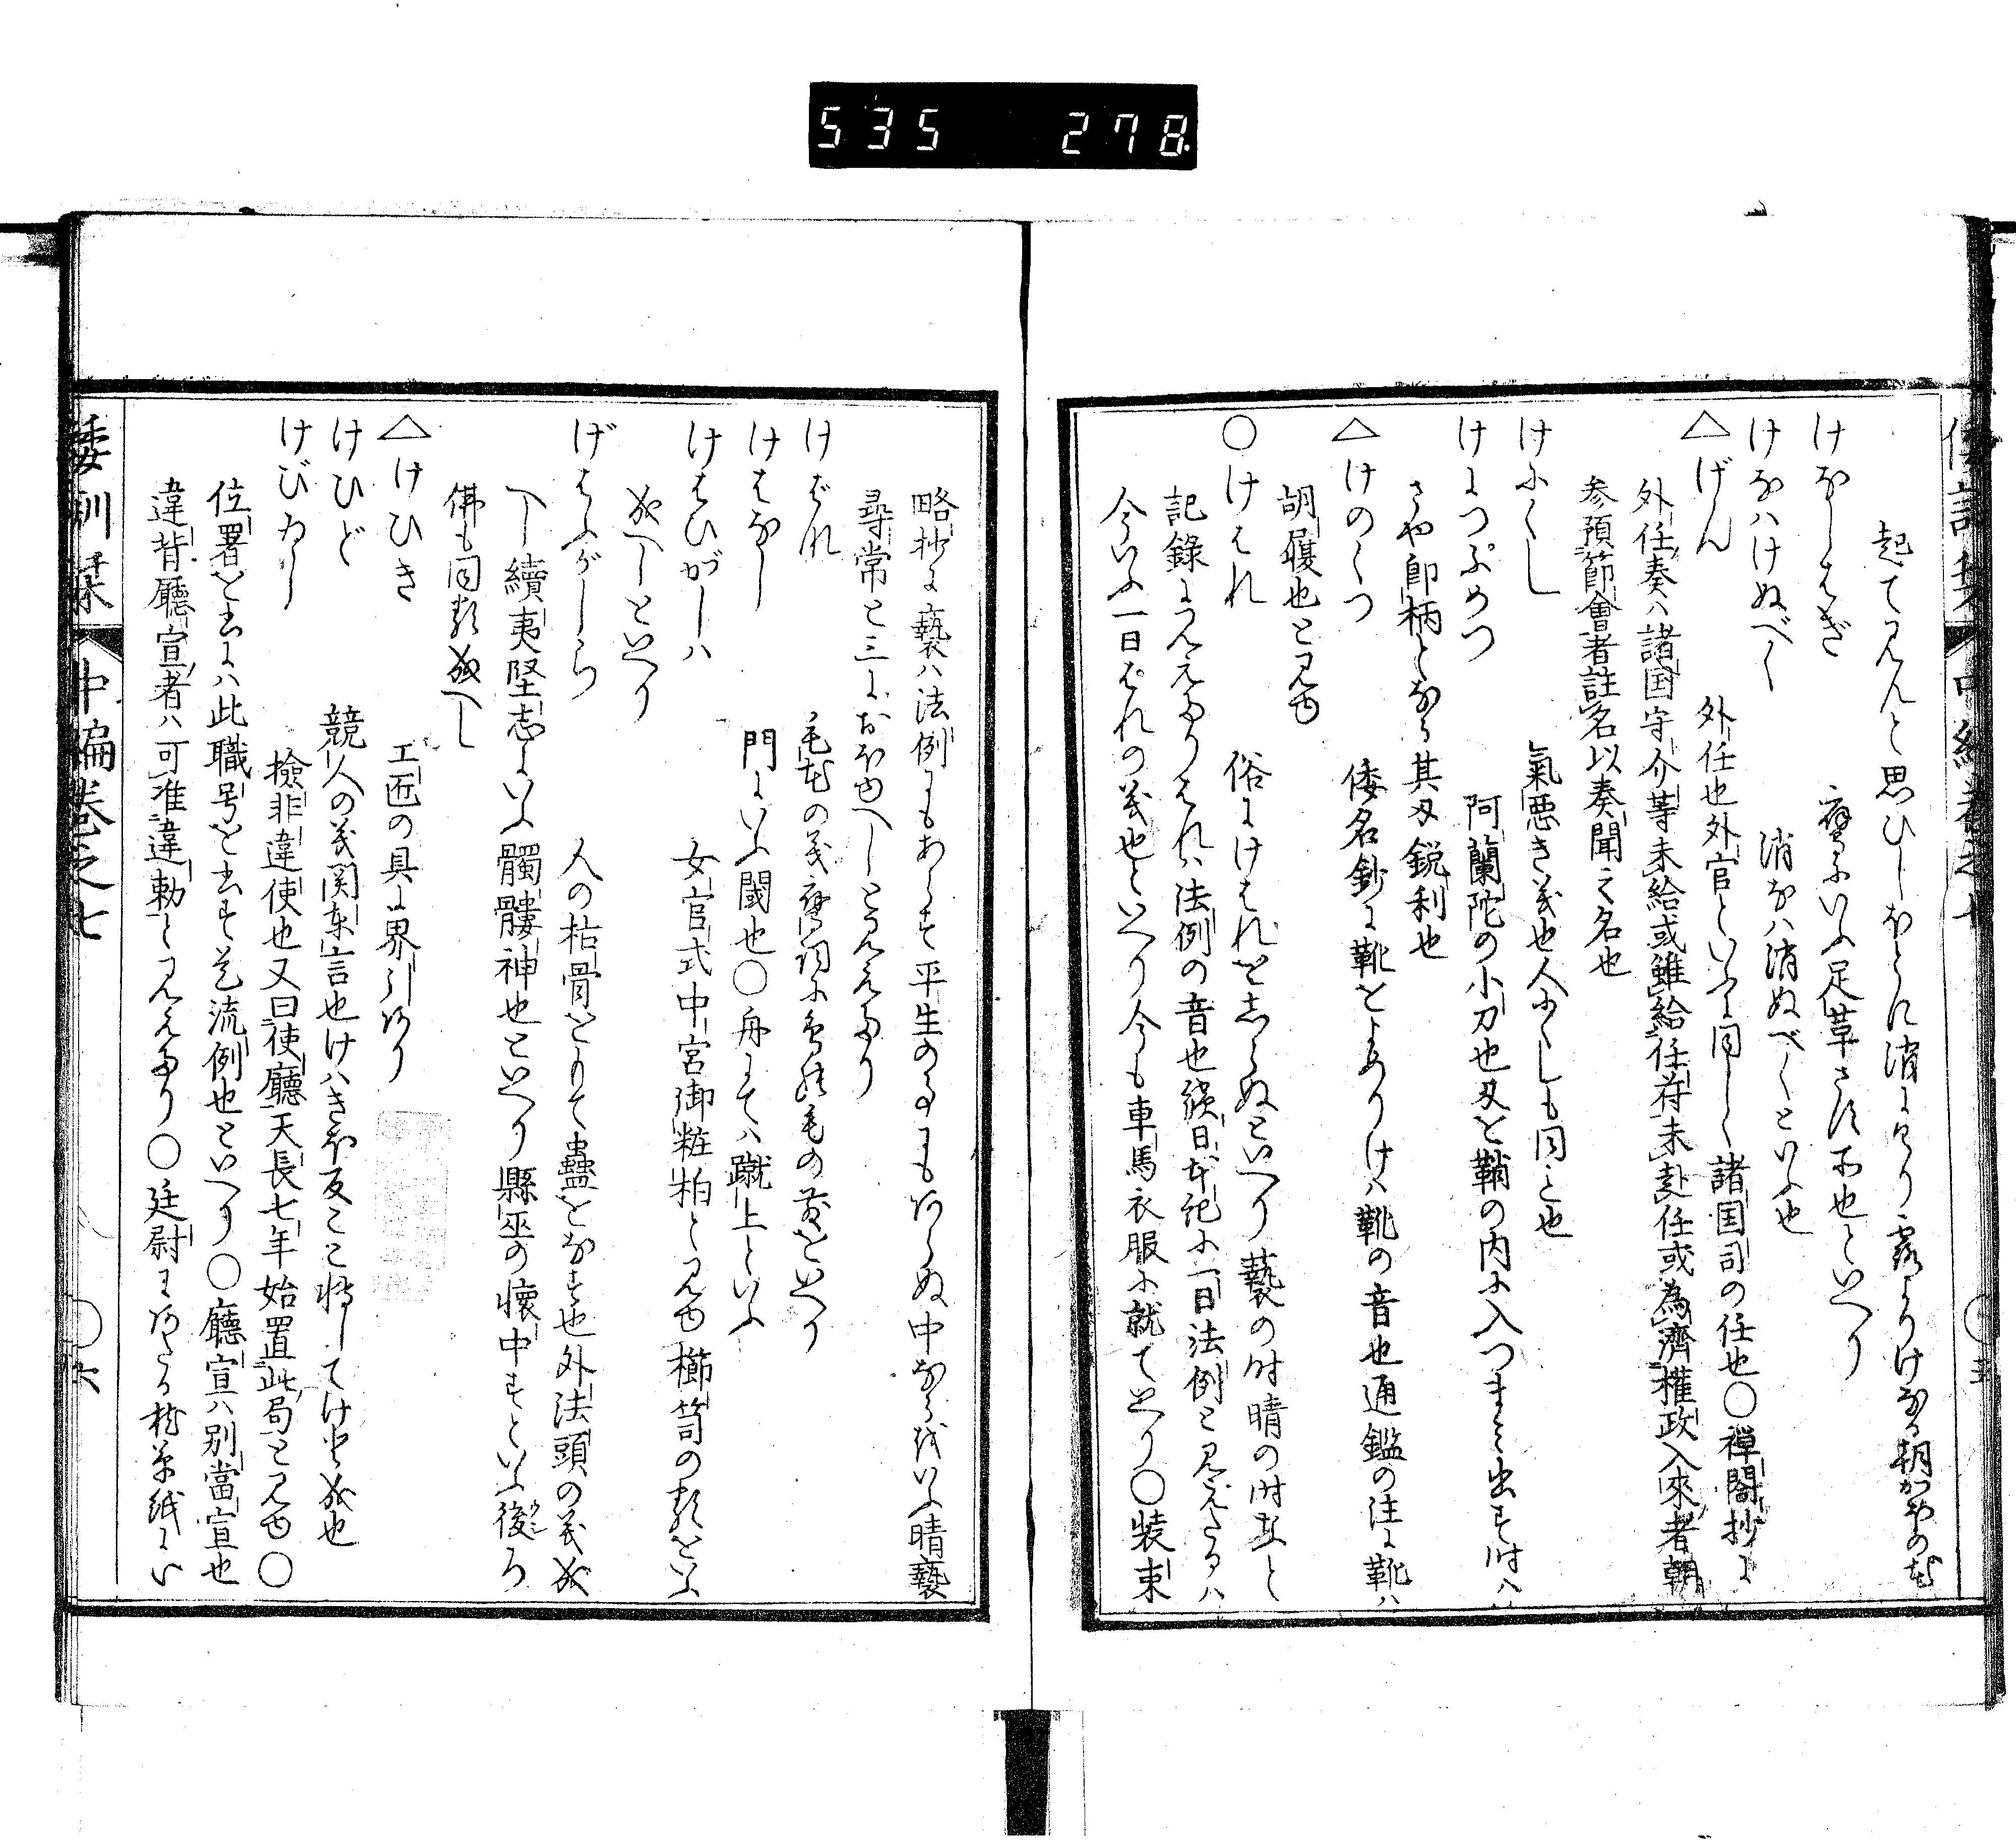 535 278
起て見んと思ひしほとに消にけり露よりけなる朝がほの花
けなしはぎ 鷹にいふ足革さす所也といへり
けなはけぬべく 消なは消ぬべくといふ也
△げゞん 外任也外官といふに同しく諸国司の任也○禅閤抄に
外任奏ハ諸国守介等未給或雖給任符未赴任或為濟權政入來者朝
参預節會者註名以奏聞之名也
けにくし 氣悪き義也人にくしも同し也
けにつぷめつ 阿蘭陀の小刀也刄を鞘の内に入つまミ出す時ハ
さや即柄となる其刄鋭利也
△けのくつ 倭名鈔に靴をよめりけハ靴の音也通鑑の注に靴ハ
胡履也と見ゆ
○けはれ 俗にけはれをしらぬといへり褻の時晴の時也と
記錄に見えたりはれハ法例の音也續日本記に一日法例と見えたるハ
今いふ一日ばれの義也といへり今も車馬衣服に就ていへり○装束
略抄に褻ハ法例にもあらす平生の事にもあらぬ中なるをいふ晴褻
尋常と三におほゆへしと見えたり
けばれ 毛花の義鷹詞に鳥の毛の
けはなし 門にいふ閾也○舟にてハ蹴上といふ
けはひがしハ 女官式中宮御粧柏と見ゆ櫛笥の類をいふ
成へしといへり
げはふがしら 人の枯骨をもて蠱をなす也外法頭の義成
へし續夷堅志にいふ髑髏神也といへり縣巫の懐中すといふ後ろ
佛も同類成へし
△けひき 工匠の具に界引あり
けひど 競人の義関東言也けハきほ反こゝ轉してけ也
けびゐし 撿非違使也又曰使廳天長七年始置此局と見ゆ○
位署を書にハ此職号を去す是流例也といへり○廳宣ハ別當宣也
違背廳宣者ハ可准違勅と見えたり○廷尉にあたる枕草紙にい
倭訓栞 中編巻之七 ○六